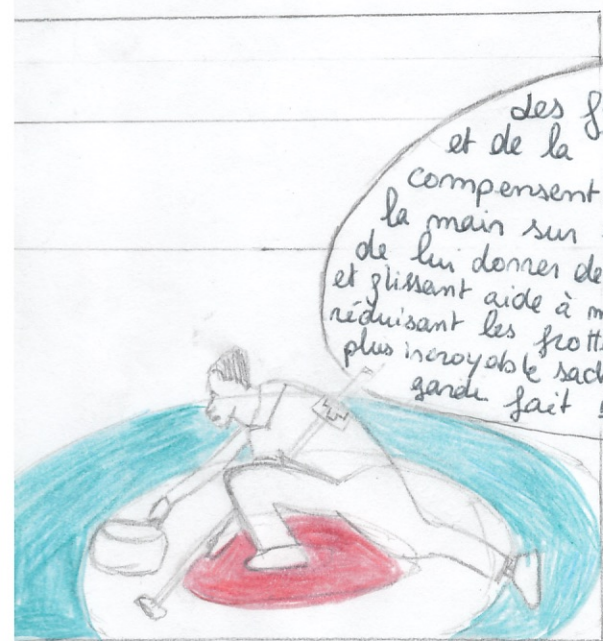 des f
et de la
compensent
la main sur
de lui donner de
et glissant aide à m
réduisant les frott
plus incroyable sach
garde fait